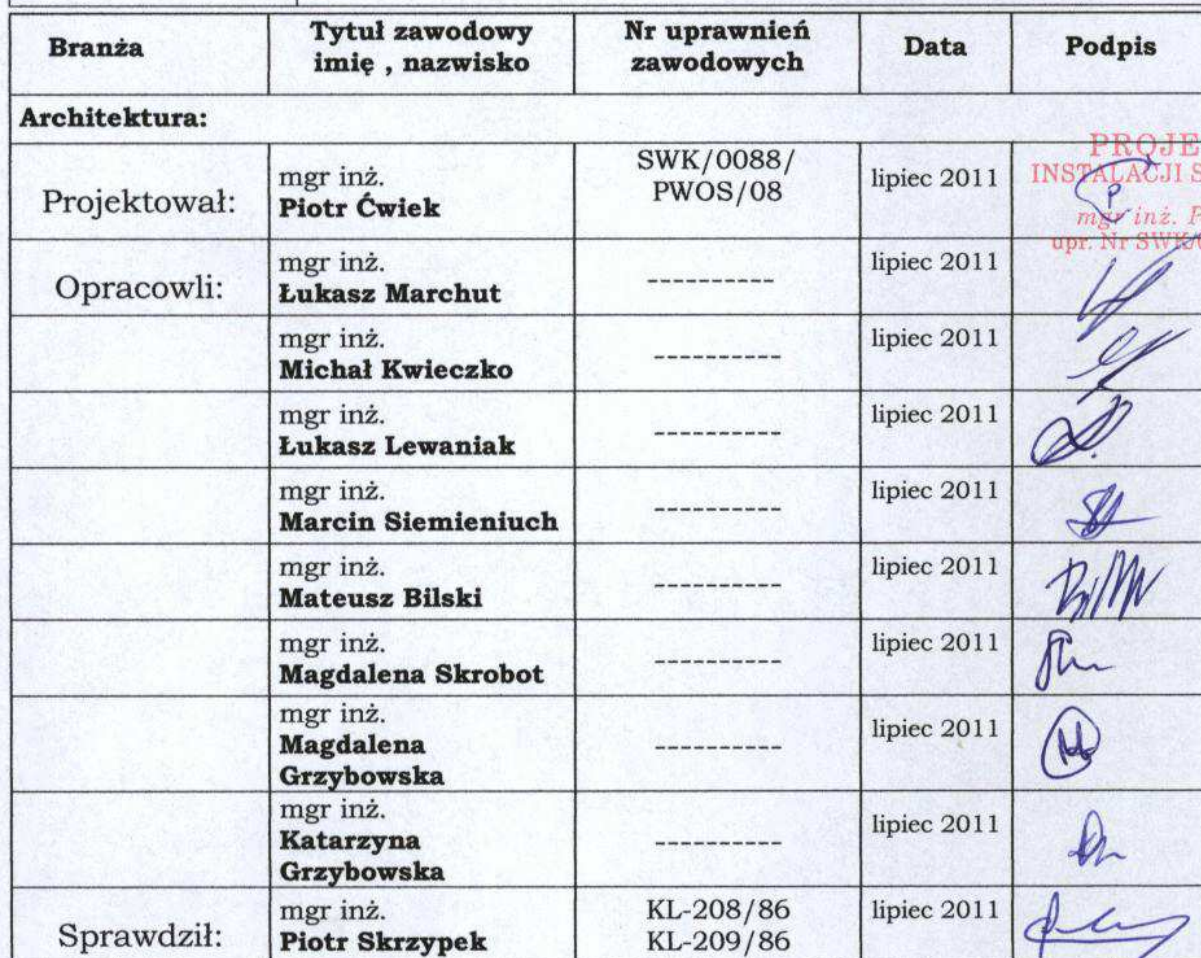 Branża
Tytuł zawodowy
imię , nazwisko
Nr uprawnień
zawodowych
Data
Podpis
Architektura:
Projektował:
mgr inż.
Piotr Ćwiek
SWK/0088/
PWOS/08
lipiec 2011
PROJE
INSTALACJI S
mgr inż. P
upr. Nr SWK/0
Opracowli:
mgr inż.
Łukasz Marchut
----------
lipiec 2011
mgr inż.
Michał Kwieczko
----------
lipiec 2011
mgr inż.
Łukasz Lewaniak
----------
lipiec 2011
mgr inż.
Marcin Siemieniuch
----------
lipiec 2011
mgr inż.
Mateusz Bilski
----------
lipiec 2011
mgr inż.
Magdalena Skrobot
----------
lipiec 2011
mgr inż.
Magdalena
Grzybowska
----------
lipiec 2011
mgr inż.
Katarzyna
Grzybowska
----------
lipiec 2011
Sprawdził:
mgr inż.
Piotr Skrzypek
KL-208/86
KL-209/86
lipiec 2011